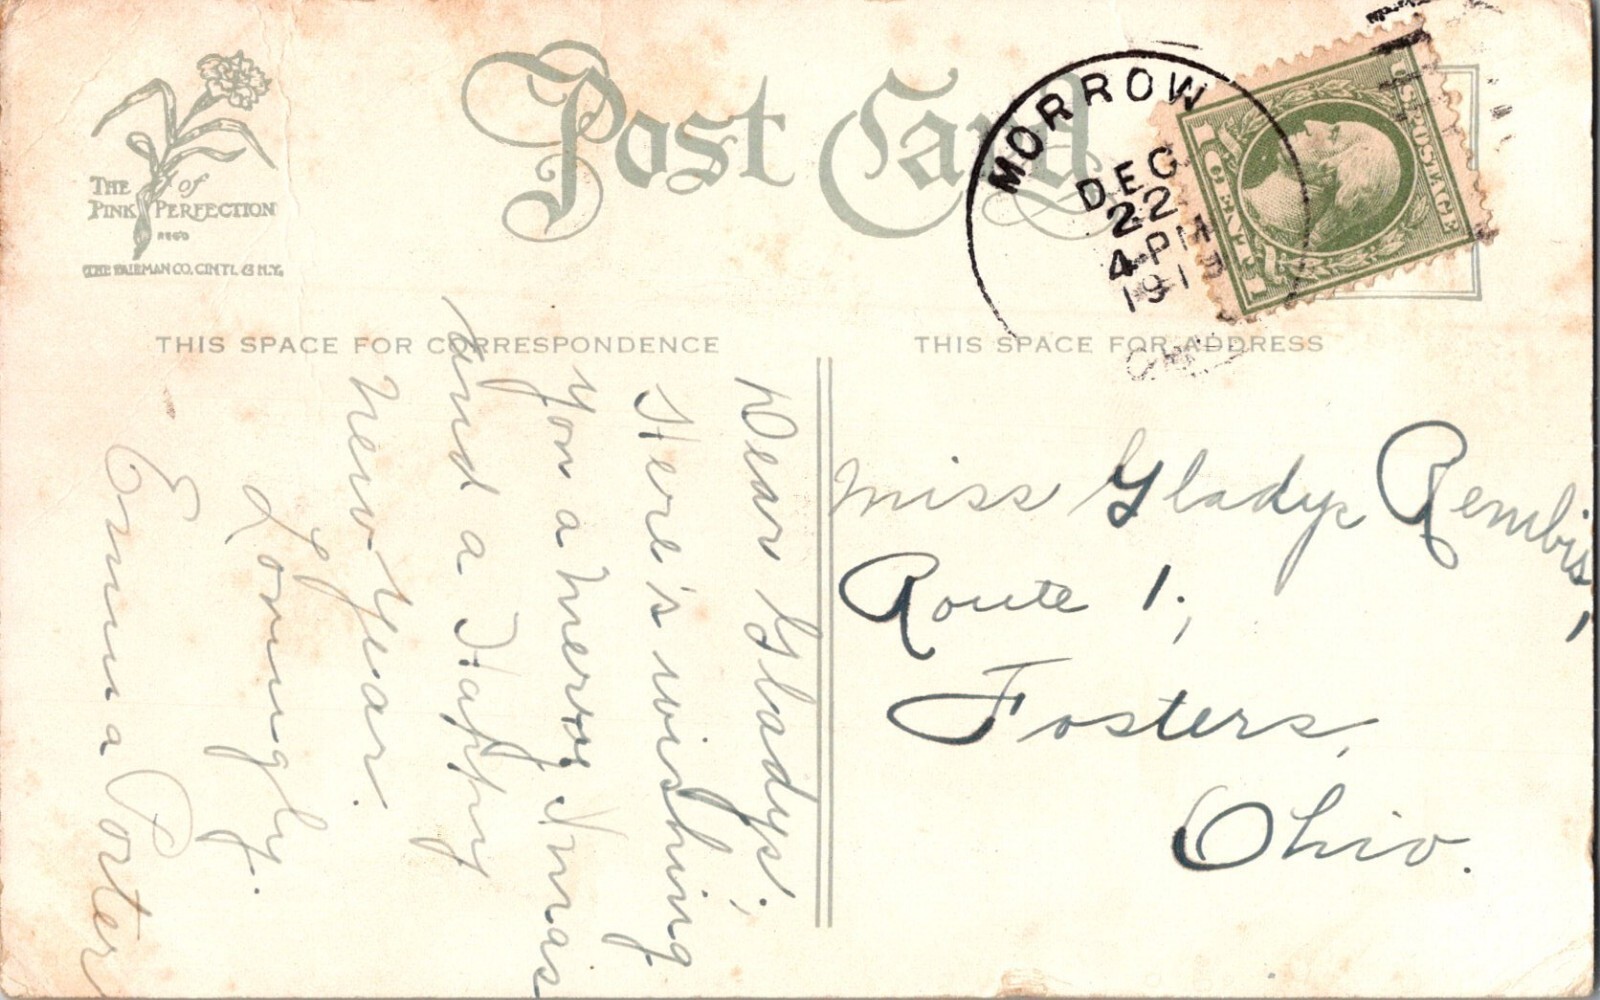 THE of
PINK PERFECTION
REG'D
THE FAIRMAN CO. CIN'TI. & N.Y.
Post Card
MORROW
DEC
22
4-PM
191
OHIO
U.S. POSTAGE
1 CENT 1
THIS SPACE FOR CORRESPONDENCE
THIS SPACE FOR ADDRESS
Dear Gladys;
Here's wishing
you a merry Xmas
and a Happy
New Year.
Lovingly.
Emma Porter
Miss Gladys
Route 1,
Fosters,
Ohio.